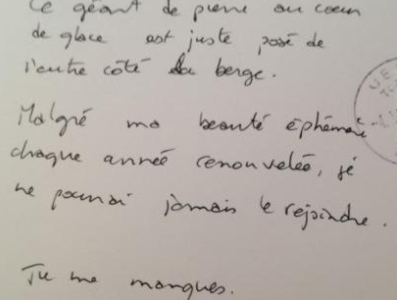 Ce géant de pierre au coeur
de glace est juste posé de
l'autre côté la berge.
Malgré ma beauté éphémère
chaque année renouvelée, je
ne pourrai jamais le rejoindre.
Tu me manques.